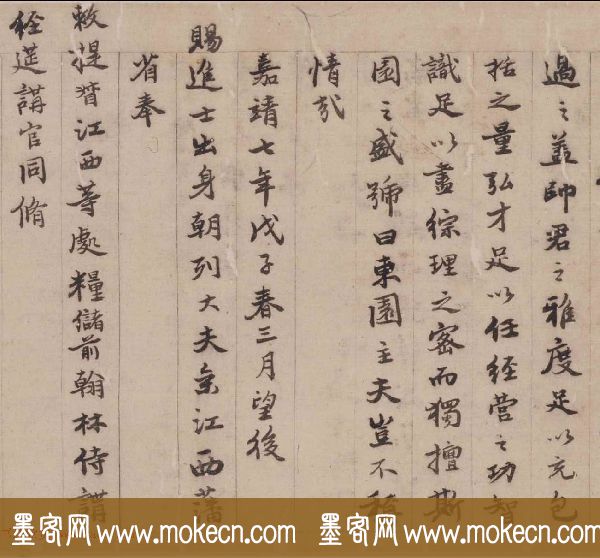 過之蓋帥君之雅度足以充包
括之量弘才足以任經營之功智
識足以盡綜理之密而獨擅斯
園之盛號曰東園主夫豈不
情哉
嘉靖七年戊子春三月望後
賜進士出身朝列大夫江西藩
省奉
敕提督江西等處糧儲前翰林侍講
經筵講官同脩
墨客网 www.mokecn.com 墨客网 www.mokecn.com